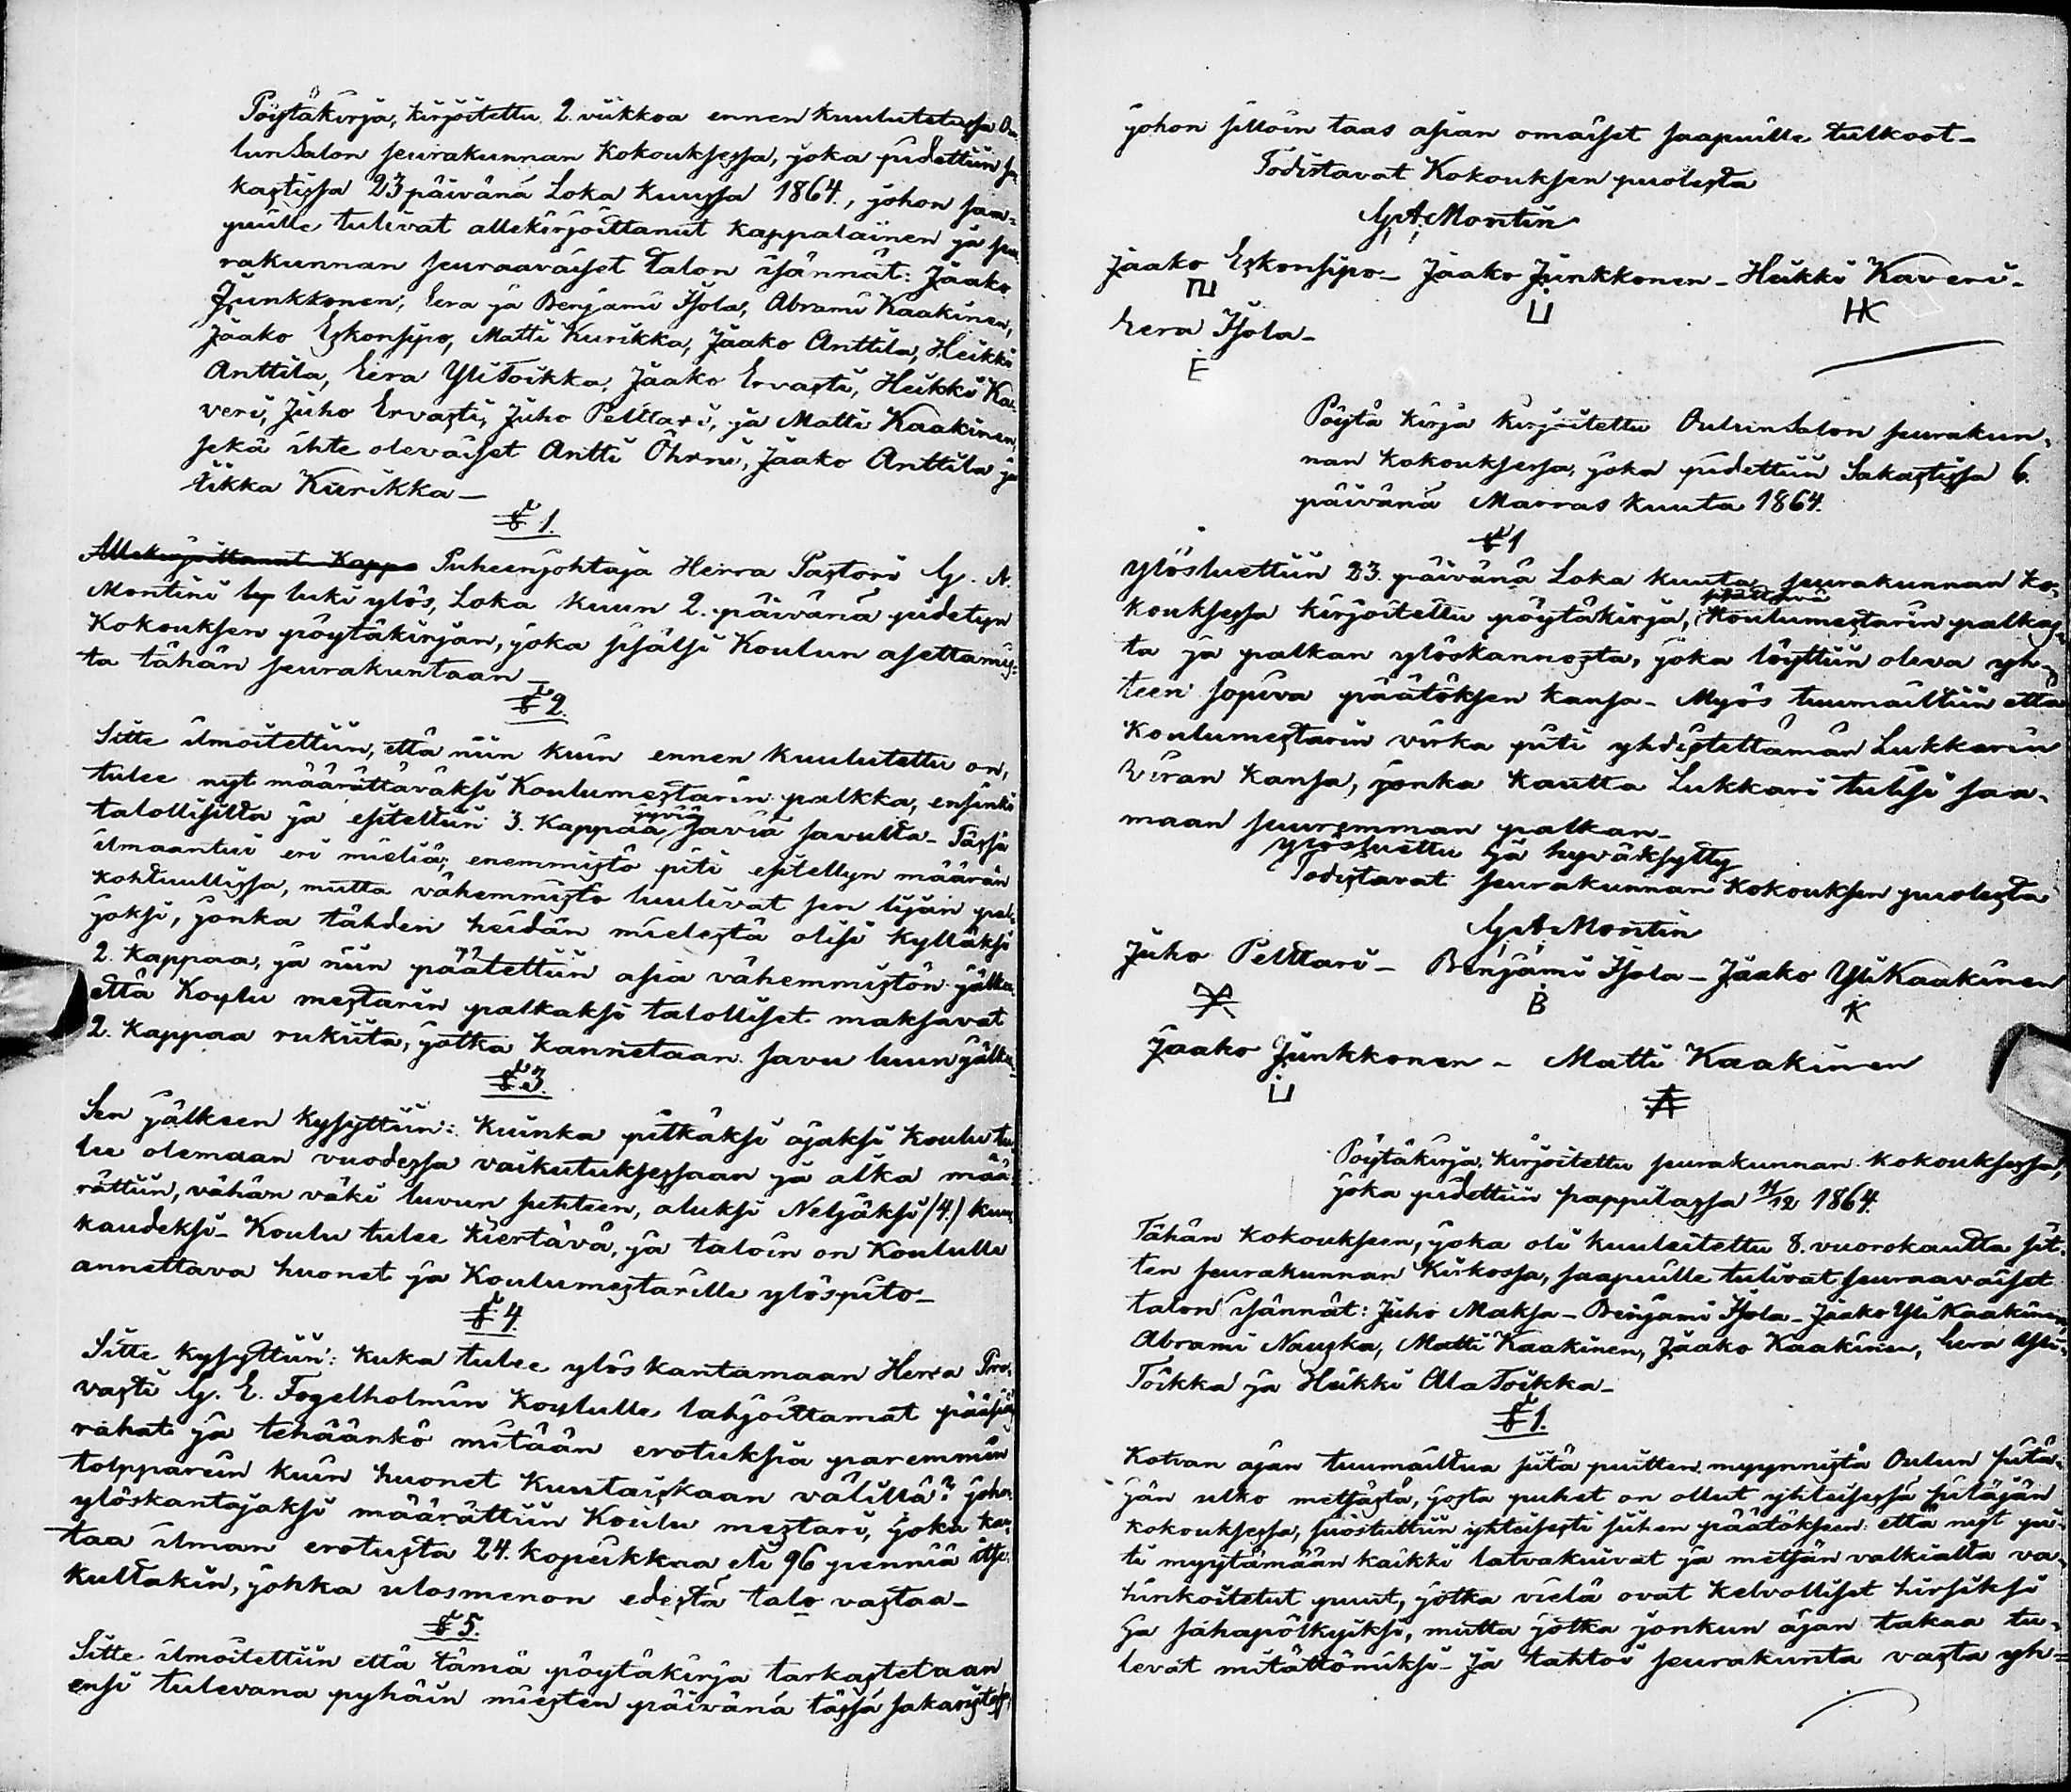 Pöytäkirja, kirjoitettu 2. viikkoa ennen kuulutetussa Ou
lunSalon seurakunnan Kokouksessa, joka pidettiin Sa
kastissa 23 päivänä Loka kuussa 1864., johon saa-
puille tulivat allekirjoittanut kappalainen ja seu
rakunnan seuraavaiset talon isännät: Jaako
Junkkonen, Eera ja Benjami Isola, Abrami Kaakinen,
Jaako Eskonsipo, Matti Kurikka, Jaako Anttila, Heikki
Anttila, Eera YliToikka, Jaako Ervasti, Heikki Ka-
veri, Juho Ervasti, Juho Pelttari, ja Matti Kaakinen,
sekä ihte olevaiset Antti Öhrni, Jaako Anttila ja
Iikka Kurikka—
§ 1.
Allekirjoittanut Kappa Puheenjohtaja Herra Pastori G. A.
Montini luki ylös, Loka kuun 2. päivänä pidetyn
Kokouksen pöytäkirjan, joka sisälsi Koulun asettamis-
ta tähän seurakuntaan—
§ 2.
Sitte ilmoitettiin, että niin kuin ennen kuulutettu on,
tulee nyt määrättäväksi Koulumestarin palkka, ensinki
talollisilta ja esiteltiin 3. Kappaa jyviä savulta- Tässä
ilmaantui eri mieliä; enemmistö piti esitellyn määrän
kohtuullissa, mutta vähemmistö luulivat sen lijan pal-
joksi, jonka tähden heidän mielestä olisi kylläksi
2. kappaa, ja niin päätettiin asia vähemmistön jälkee.
että Koulu mestarin palkaksi talolliset maksavat
2. kappaa rukiita, jotka kannetaan savu luun jälkee-
§ 3.
Sen jälkeen kysyttiin: Kuinka pitkäksi ajaksi koulu tu
lee olemaan vuodessa vaikutuksessaan ja aika mää-
rättiin, vähän väki luvun suhteen, aluksi Neljäksi /4./ kuu
kaudeksi- Koulu tulee kiertävä, ja taloin on Koululle
annettava huonet ja Koulumestarille ylöspito-
§ 4.
Sitte kysyttiin: Kuka tulee ylös kantamaan Herra Pro-
vasti G. E. Fogelholmin Koululle lahjoittamat pääsiäis
rahat ja tehäänkö mitään erotuksia paremmin
tolpparein kuin huonet kuntaiskaan välillä? johon
ylöskantajaksi määrättiin Koulu mestari, joka kan
taa ilman erotusta 24. kopeikkaa eli 96 penniä itse
kultakin, johka ulosmenon edestä talo vastaa-
§ 5.
Sitte ilmoitettiin että tämä pöytäkirja tarkastetaan
ensi tulevana pyhäin miesten päivänä tässä sakaristossa,
johon silloin taas asian omaiset saapuille tulkoot-
Todistavat Kokouksen puolesta
G. A. Montin
Jaako Eskonsipo- Jaako Junkkonen- Heikki Kaveri-
HK
Eera Isola-
E
Pöytä kirja kirjoitettu OulunSalon seurakun-
nan kokouksessa, joka pidettiin Sakastissa 6.
päivänä Marras kuuta 1864.
§ 1
Ylösluettiin 23. päivänä Loka kuuta seurakunnan ko-
kouksessa kirjoitettu pöytäkirja, Koulumestarin palkas-
ta ja palkan ylöskannosta, joka löyttiin oleva yh-
teen sopiva päätöksen kansa- Myös tuumailtiin että
Koulumestarin virka piti yhdistettämän Lukkarin
Viran kansa, jonka kautta Lukkari tulisi saa-
maan suuremman palkan-
Ylösluettu ja hyväksytty
Todistavat seurakunnan Kokouksen puolesta
G. A. Montin
Juho Pelttari- Benjami Isola- Jaako YliKaakinen
B K
Jaako Junkkonen- Matti Kaakinen
Pöytäkirja, kirjoitettu seurakunnan kokouksessa,
joka pidettiin pappilassa 11/12 1864.
Tähän kokoukseen, joka oli kuulutettu 8. vuorokautta sit-
ten seurakunnan Kirkossa, saapuille tulivat seuraavaiset
talon isännät: Juho Maksa- Benjami Isola- Jaako YliKaakinen,
Abrami Nauska, Matti Kaakinen, Jaako Kaakinen, Eera Yli-
Toikka ja Heikki AlaToikka-
§ 1.
Kotvan ajan tuumailtua siitä puitten myynnistä Oulun pitä-
jän ulko metsästä, josta puhet on ollut yhteisessä pitäjän
kokouksessa, suostuttiin yhteisesti siihen päätökseen: että nyt pi-
ti myytämään kaikki latvakuivat ja metsän valkialta va-
hinkoitetut puut, jotka vielä ovat kelvolliset hirsiksi
ja sahapölkyiksi, mutta jotka jonkun ajan takaa tu-
levat mitättömiksi- Ja tahtoi seurakunta vasta yh-